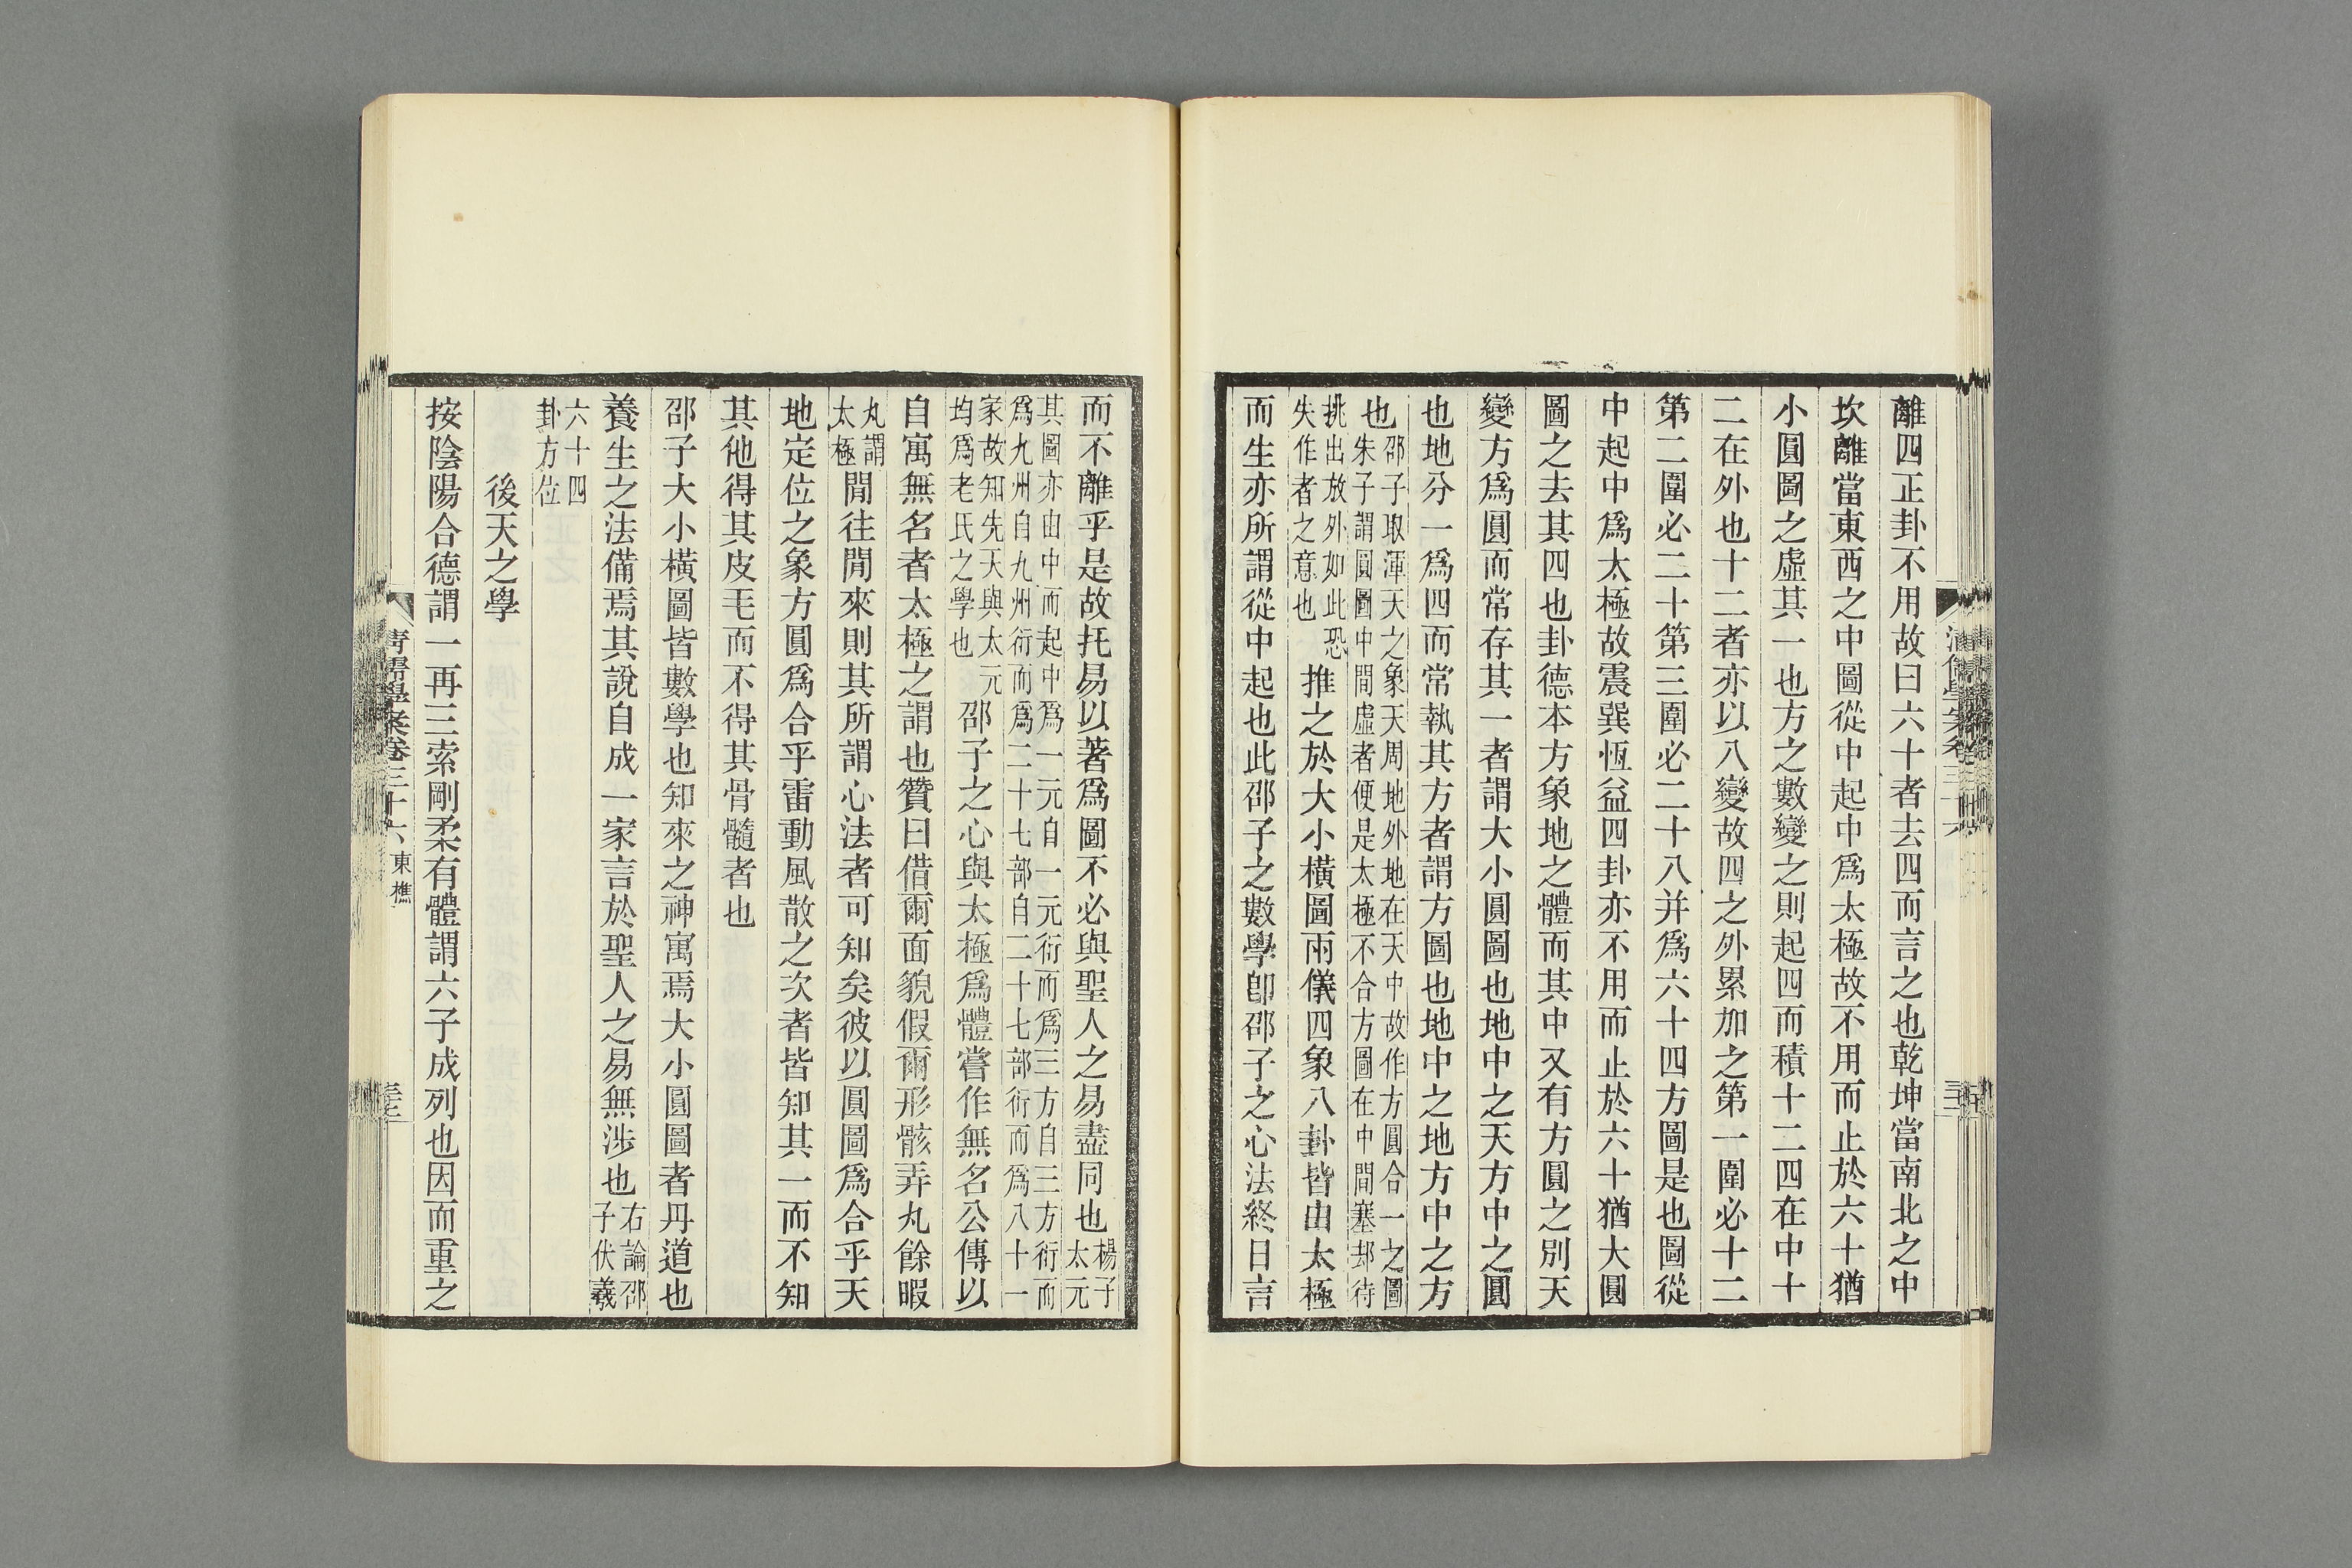 離四正卦不用故曰六十者去四而言之也乾坤當南北之中
坎離當東西之中圖從中起中爲太極故不用而止於六十猶
小圓圖之虛其一也方之數變之則起四而積十二四在中十
二在外也十二者亦以八變故四之外累加之第一圍必十二
第二圍必二十第三圍必二十八并爲六十四方圖是也圖從
中起中爲太極故震巽恆益四卦亦不用而止於六十猶大圓
圖之去其四也卦德本方象地之體而其中又有方圓之別天
變方爲圓而常存其一者謂大小圓圖也地中之天方中之圓
也地分一爲四而常執其方者謂方圖也地中之地方中之方
也邵子取渾天之象天周地外地在天中故作方圓合一之圖
朱子謂圓圖中間虛者便是太極不合方圖在中間塞却待
挑出放外如此恐
失作者之意也推之於大小橫圖兩儀四象八卦皆由太極
而生亦所謂從中起也此邵子之數學卽邵子之心法終日言
而不離乎是故托易以著爲圖不必與聖人之易盡同也楊子
太元
其圖亦由中而起中爲一元自一元衍而爲三方自三方衍而
爲九州自九州衍而爲二十七部自二十七部衍而爲八十一
家故知先天與太元
均爲老氏之學也邵子之心與太極爲體嘗作無名公傳以
自寓無名者太極之謂也贊曰借爾面貌假爾形骸弄丸餘暇
丸謂
太極閒往閒來則其所謂心法者可知矣彼以圓圖爲合乎天
地定位之象方圓爲合乎雷動風散之次者皆知其一而不知
其他得其皮毛而不得其骨髓者也
邵子大小橫圖皆數學也知來之神寓焉大小圓圖者丹道也
養生之法備焉其說自成一家言於聖人之易無涉也右論邵
子伏羲
六十四
卦方位
後天之學
按陰陽合德謂一再三索剛柔有體謂六子成列也因而重之
清儒學案卷三十六 東樵